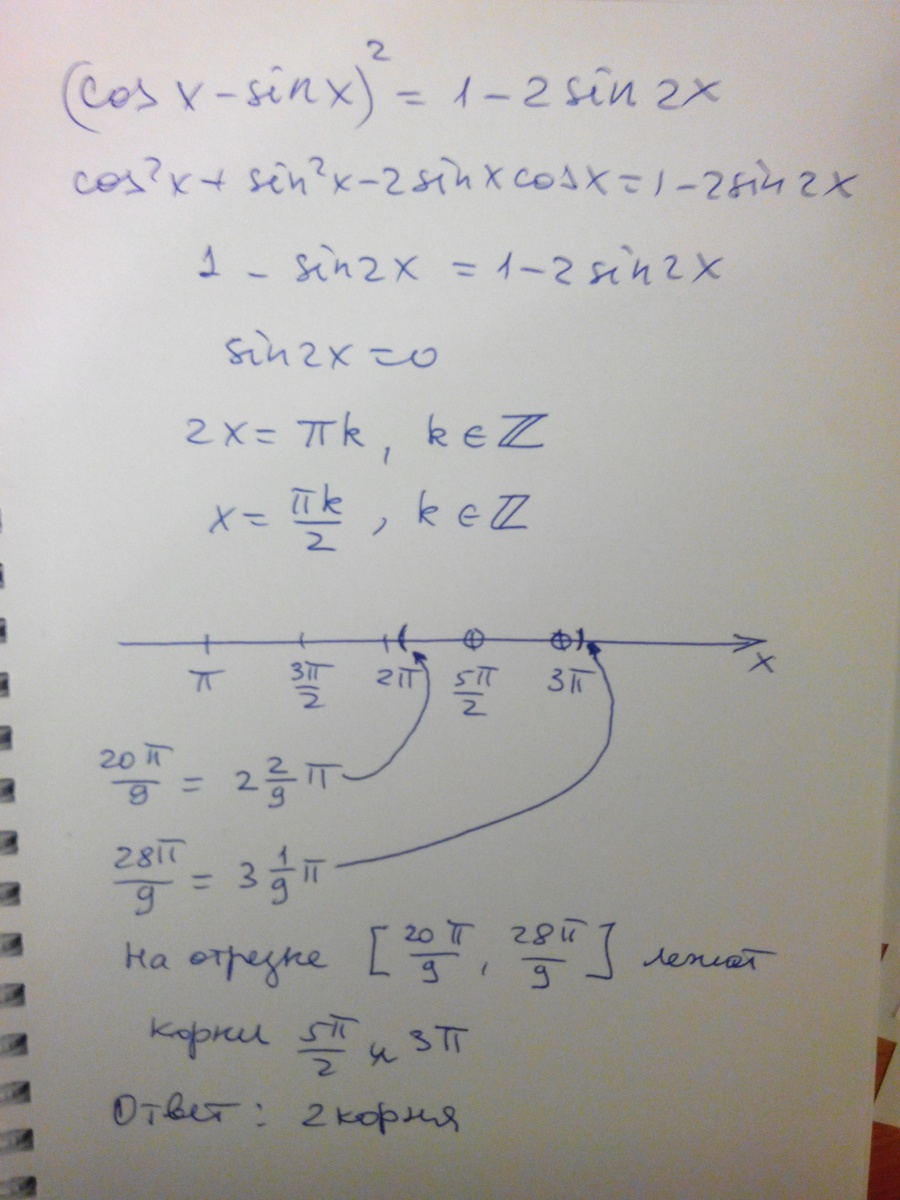 (cos x − sin x)² = 1 − 2 sin 2x
cos²x + sin²x − 2 sin x cos x = 1 − 2 sin 2x
1 − sin 2x = 1 − 2 sin 2x
sin 2x = 0
2x = πk, k ∈ ℤ
x = πk/2, k ∈ ℤ
π 3π/2 2π 5π/2 3π x
20π/9 = 2 2/9 π
28π/9 = 3 1/9 π
На отрезке [20π/9, 28π/9] лежат
корни 5π/2 и 3π
Ответ: 2 корня